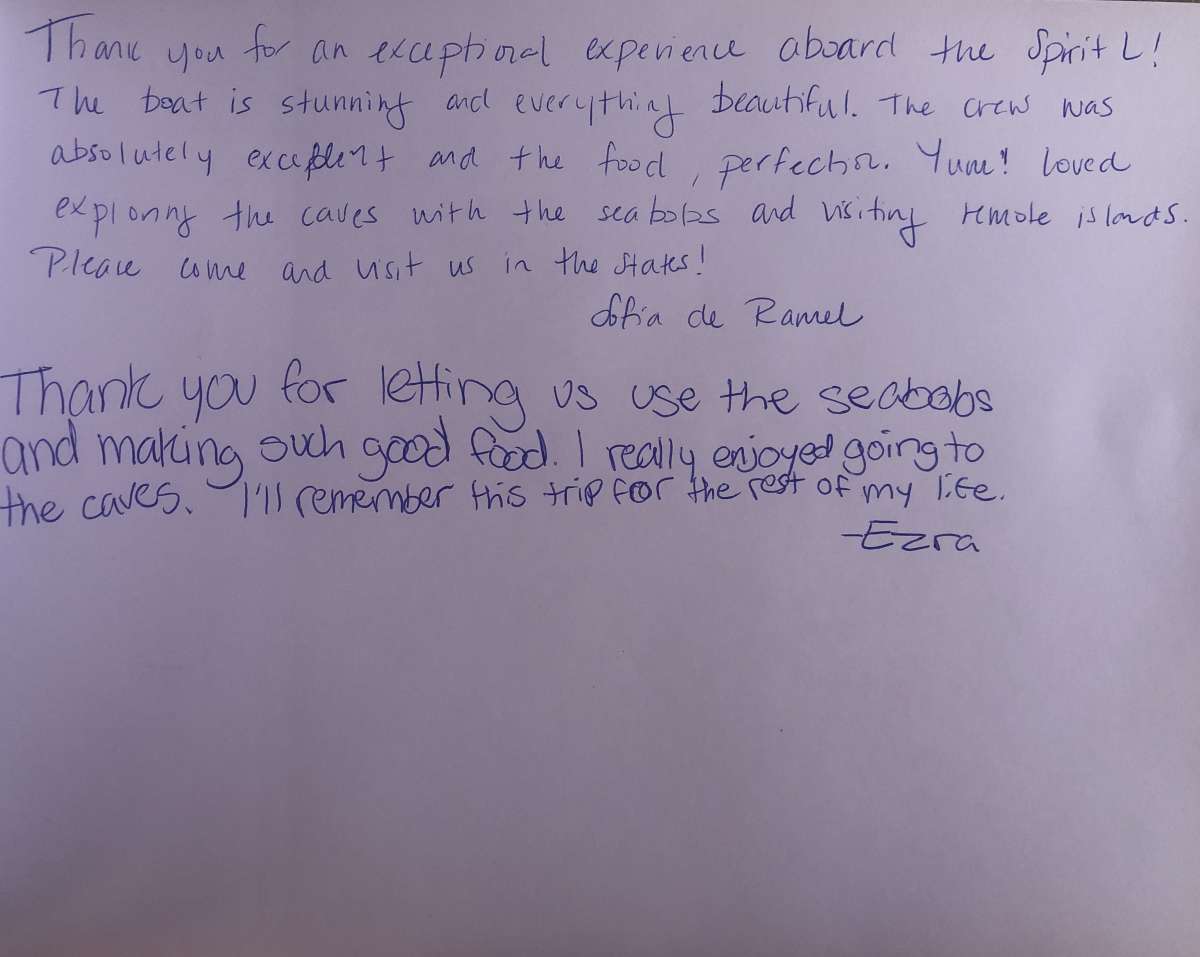 Thank you for an exceptional experience aboard the Spirit L!
The boat is stunning and everything beautiful. The crew was
absolutely excellent and the food, perfection. Yum! loved
exploring the caves with the seabobs and visiting remote islands.
Please come and visit us in the States!
Sofia de Ramel
Thank you for letting us use the seabobs
and making such good food. I really enjoyed going to
the caves. I'll remember this trip for the rest of my life.
-Ezra